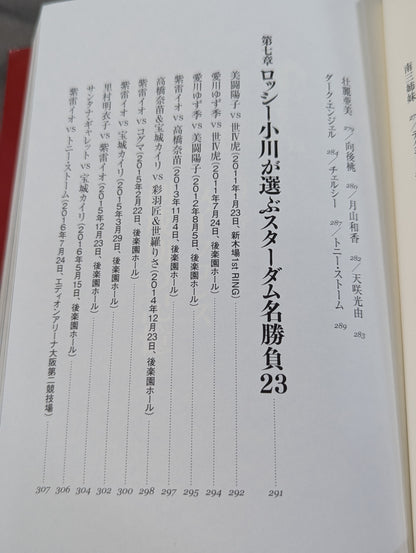 南三姉妹
壮麗亜美 279／向後桃 280／月山和香 282／天咲光由 283
ダーク・エンジェル 284／チェルシー 287／トニー・ストーム 289
第七章 ロッシー小川が選ぶスターダム名勝負23 291
美闘陽子 vs 世Ⅳ虎（2011年1月23日、新木場1st RING） 292
愛川ゆず季 vs 世Ⅳ虎（2011年7月24日、後楽園ホール） 294
愛川ゆず季 vs 美闘陽子（2012年8月5日、後楽園ホール） 295
紫雷イオ vs 高橋奈苗（2013年11月4日、後楽園ホール） 297
高橋奈苗&宝城カイリ vs 彩羽匠&世羅りさ（2014年12月23日、後楽園ホール） 298
紫雷イオ vs コグマ（2015年2月22日、後楽園ホール） 300
紫雷イオ vs 宝城カイリ（2015年3月29日、後楽園ホール） 302
里村明衣子 vs 紫雷イオ（2015年12月23日、後楽園ホール） 304
サンタナ・ギャレット vs 宝城カイリ（2016年5月15日、後楽園ホール） 306
紫雷イオ vs トニー・ストーム（2016年7月24日、エディオンアリーナ大阪第二競技場） 307